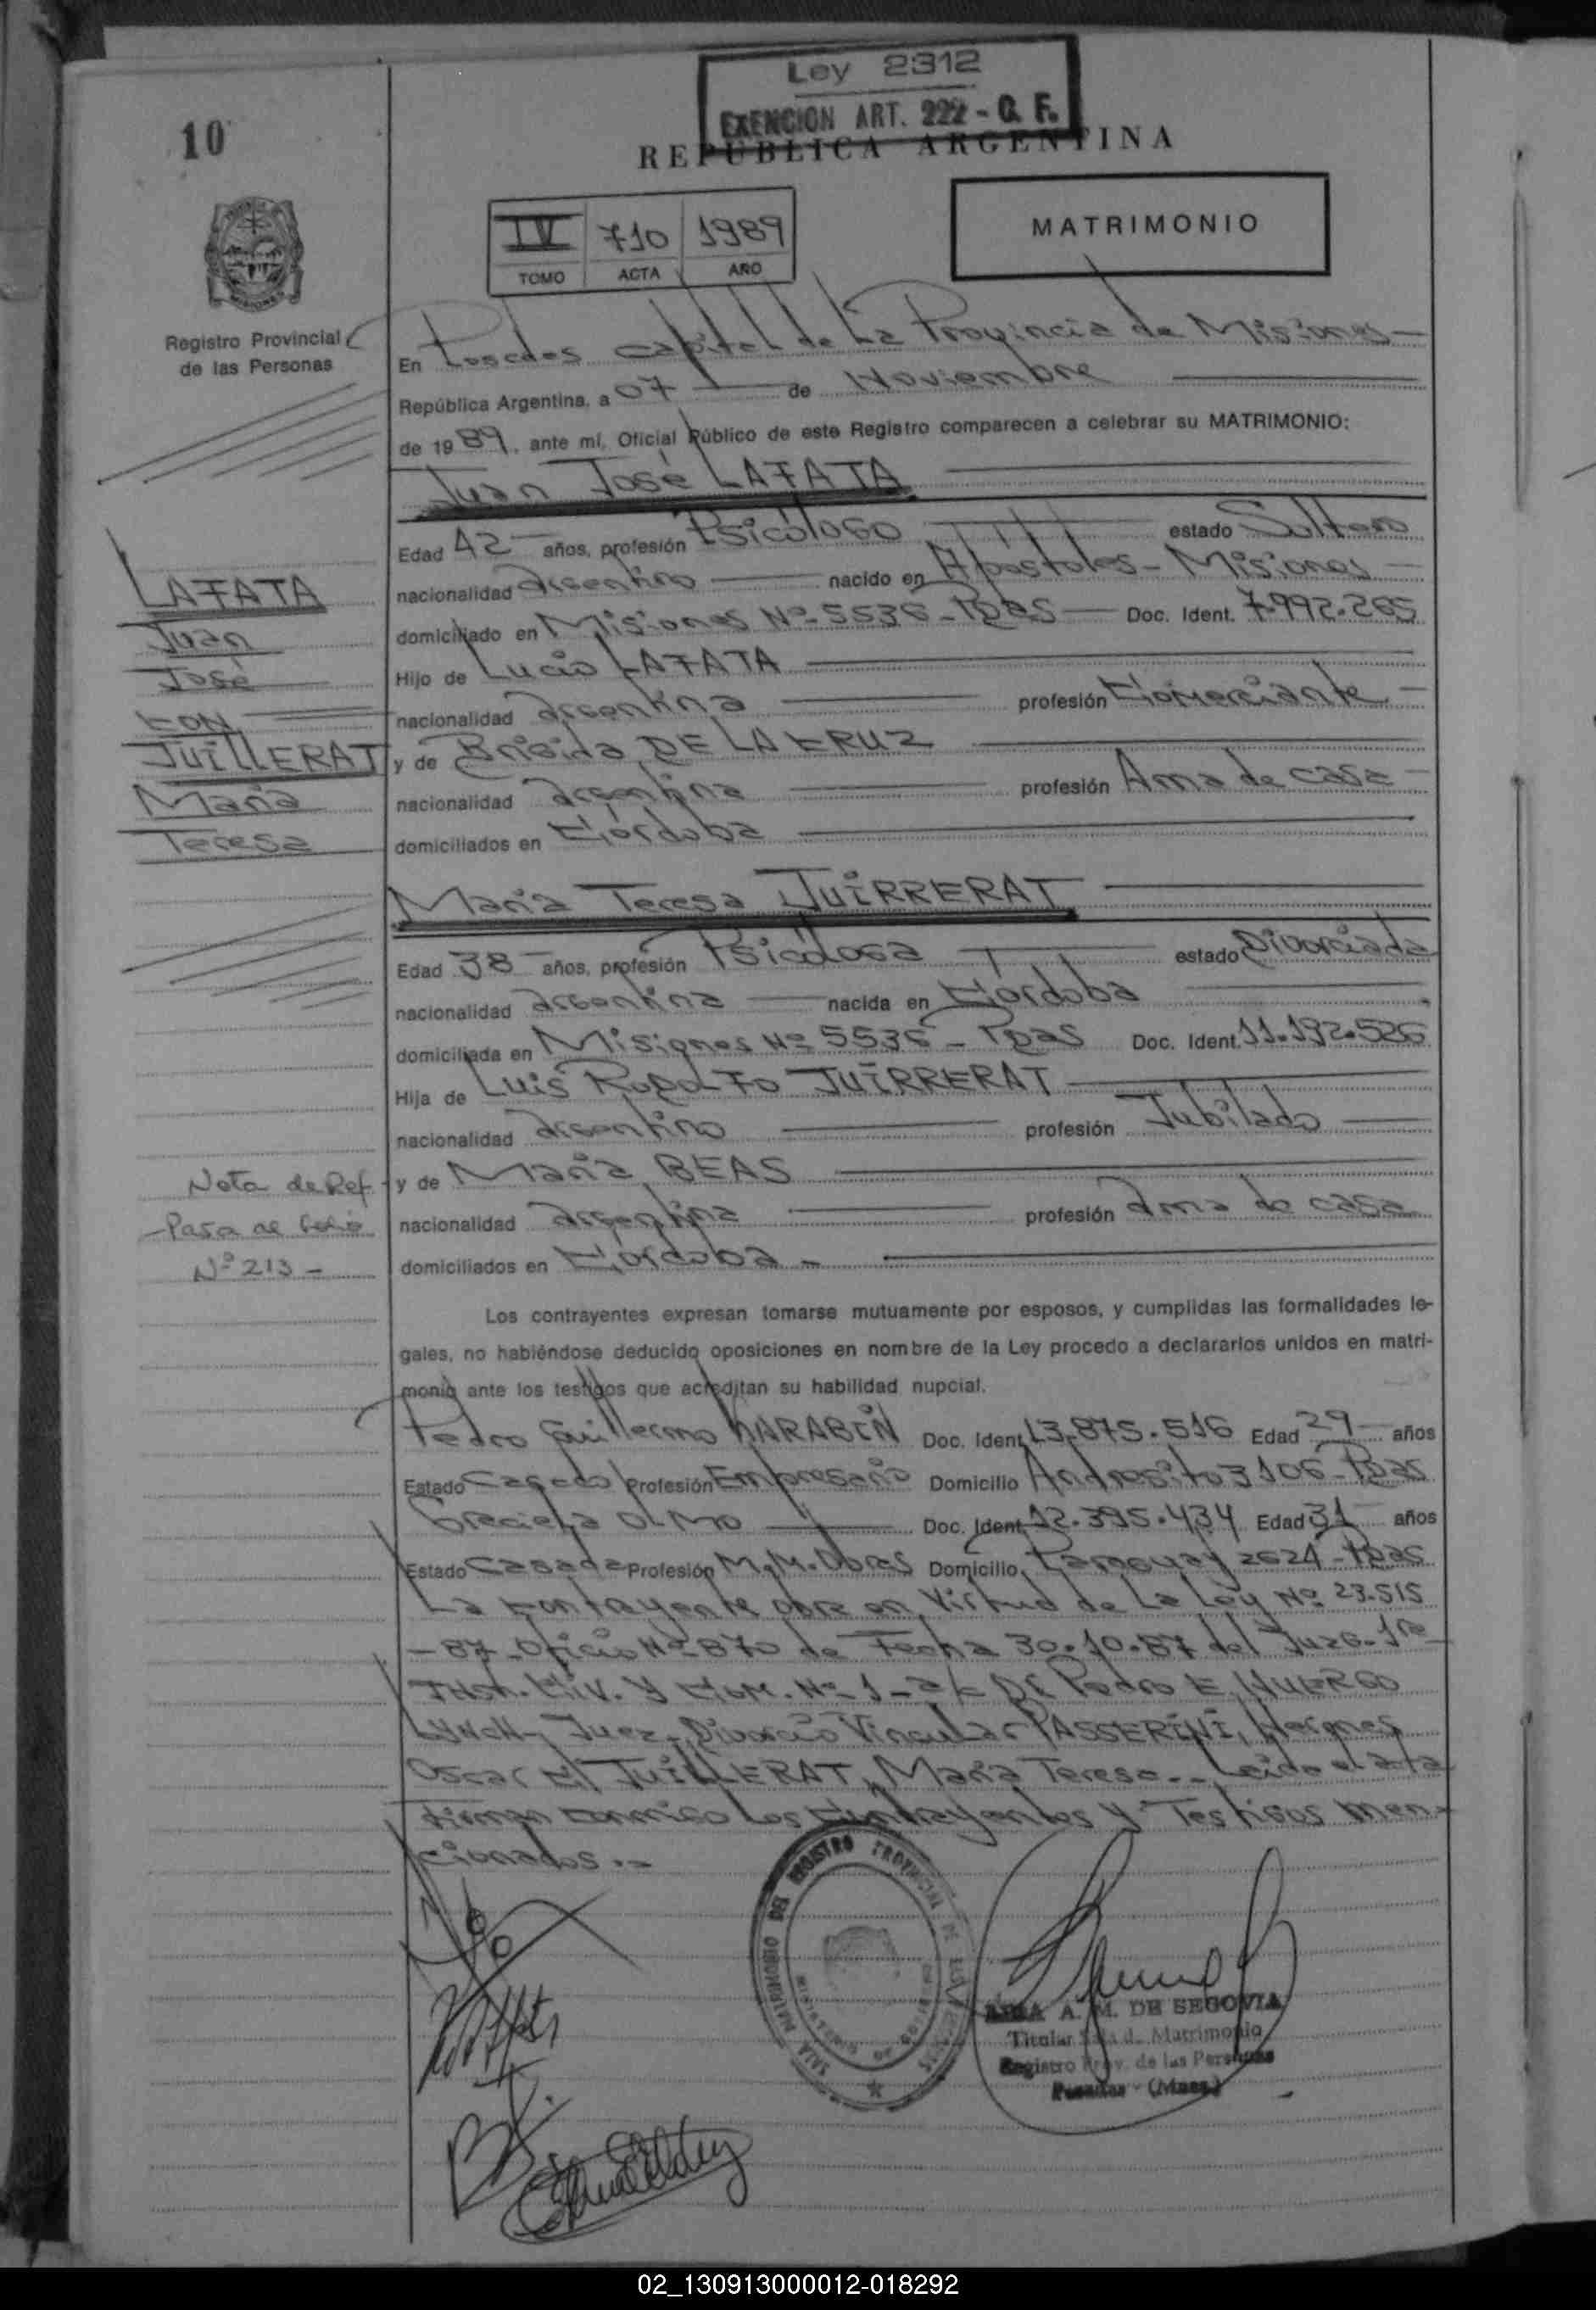 Ley 2312
EXENCION ART. 222 - C. F.
10
REPUBLICA ARGENTINA
IV 710 1989
TOMO ACTA AÑO
MATRIMONIO
MISIONES
Registro Provincial
de las Personas
En Posadas capital de La Provincia de Misiones
República Argentina, a 07 de Noviembre
de 1989, ante mí, Oficial Público de este Registro comparecen a celebrar su MATRIMONIO:
Juan José LAFATA
Edad 42 años, profesión Psicólogo estado Soltero
nacionalidad Argentino nacido en Apóstoles - Misiones
domiciliado en Misiones Nº 5536 - Pdas Doc. Ident. 7.992.265
Hijo de Lucio LAFATA
nacionalidad Argentina profesión Comerciante
y de Brigida DE LA CRUZ
nacionalidad Argentina profesión Ama de casa
domiciliados en Córdoba
LAFATA
Juan
José
CON
JUILLERAT
María
Teresa
María Teresa JUIRRERAT
Edad 38 años, profesión Psicóloga estado Divorciada
nacionalidad Argentina nacida en Córdoba
domiciliada en Misiones Nº 5536 - Pdas Doc. Ident. 11.192.526
Hija de Luis Rodolfo JUIRRERAT
nacionalidad Argentino profesión Jubilado
y de María BEAS
nacionalidad Argentina profesión Ama de casa
domiciliados en Córdoba -
Nota de Ref.
Pasa al folio
Nº 213 -
Los contrayentes expresan tomarse mutuamente por esposos, y cumplidas las formalidades le-
gales, no habiéndose deducido oposiciones en nombre de la Ley procedo a declararlos unidos en matri-
monio ante los testigos que acreditan su habilidad nupcial.
Pedro Guillermo KARABIN Doc. Ident. 13.875.516 Edad 29 años
Estado Casado Profesión Empresario Domicilio Andresito 3106 - Pdas
Graciela OLMO Doc. Ident. 12.395.434 Edad 31 años
Estado Casada Profesión Domicilio Paraguay 2624 - Pdas
La Contrayente obra en Virtud de La Ley Nº 23.515
- 87 - Oficio Nº 870 de Fecha 30.10.87 del Juzg. 1ra
Inst. Civ. y Com. Nº 1 - Dr Pedro E. HUERGO
LYNCH - Juez - Divorcio Vincular PASSERINI, Hermes
Oscar C/ JUILLERAT, María Teresa.- Leido el acta
Firman conmigo Los Contrayentes y Testigos men-
cionados.-
SALA MATRIMONIO DEL REGISTRO PROVINCIAL DE LAS PERSONAS
A. M. DE SEGOVIA
Titular Sala de Matrimonio
Registro Prov. de las Personas
Posadas - (Mnes.)
02_130913000012-018292